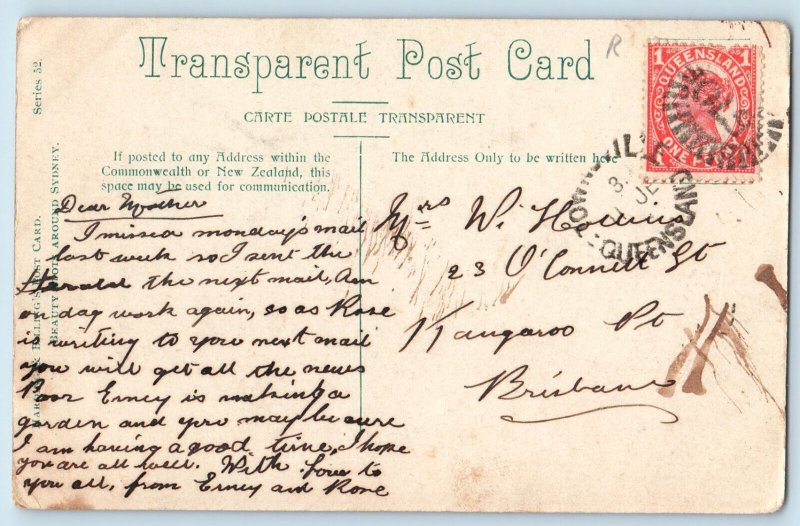 Transparent Post Card
CARTE POSTALE TRANSPARENT
If posted to any Address within the
Commonwealth or New Zealand, this
space may be used for communication.
The Address Only to be written here
Series 52.
BEAUTY SPOTS AROUND SYDNEY.
POST CARD.
R
1 QUEENSLAND 1
ONE
TOWNSVILLE
8
QUEENSLAND
Dear Mother
I missed monday's mail
last week so I sent the
Herald the next mail, Am
on day work again, so as Rose
is writing to you next mail
you will get all the news
Poor Erney is making a
garden and you may be sure
I am having a good time, I hope
you are all well. With love to
you all, from Erney and Rose
Mrs W.
23 O'Connell St
Kangaroo Pt
Brisbane